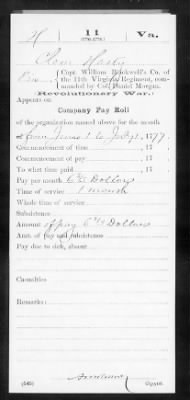 H 11 Va.
(1776-1778.)
Clem Hasty
Capt. William Blackwell's Co. of
the 11th Virginia Regiment, com-
manded by Col. Daniel Morgan.
Revolutionary War.
Appears on
Company Pay Roll
of the organization named above for the month
from June 1 to July 1, 1777
Commencement of time , 17
Commencement of pay , 17
To what time paid , 17
Pay per month 6 2/3 Dollars
Time of service 1 month
Whole time of service
Subsistence
Amount of pay 6 2/3 Dollars
Amt. of pay and subsistence
Pay due to sick, absent
Casualties
Remarks:
(545) Copyist.